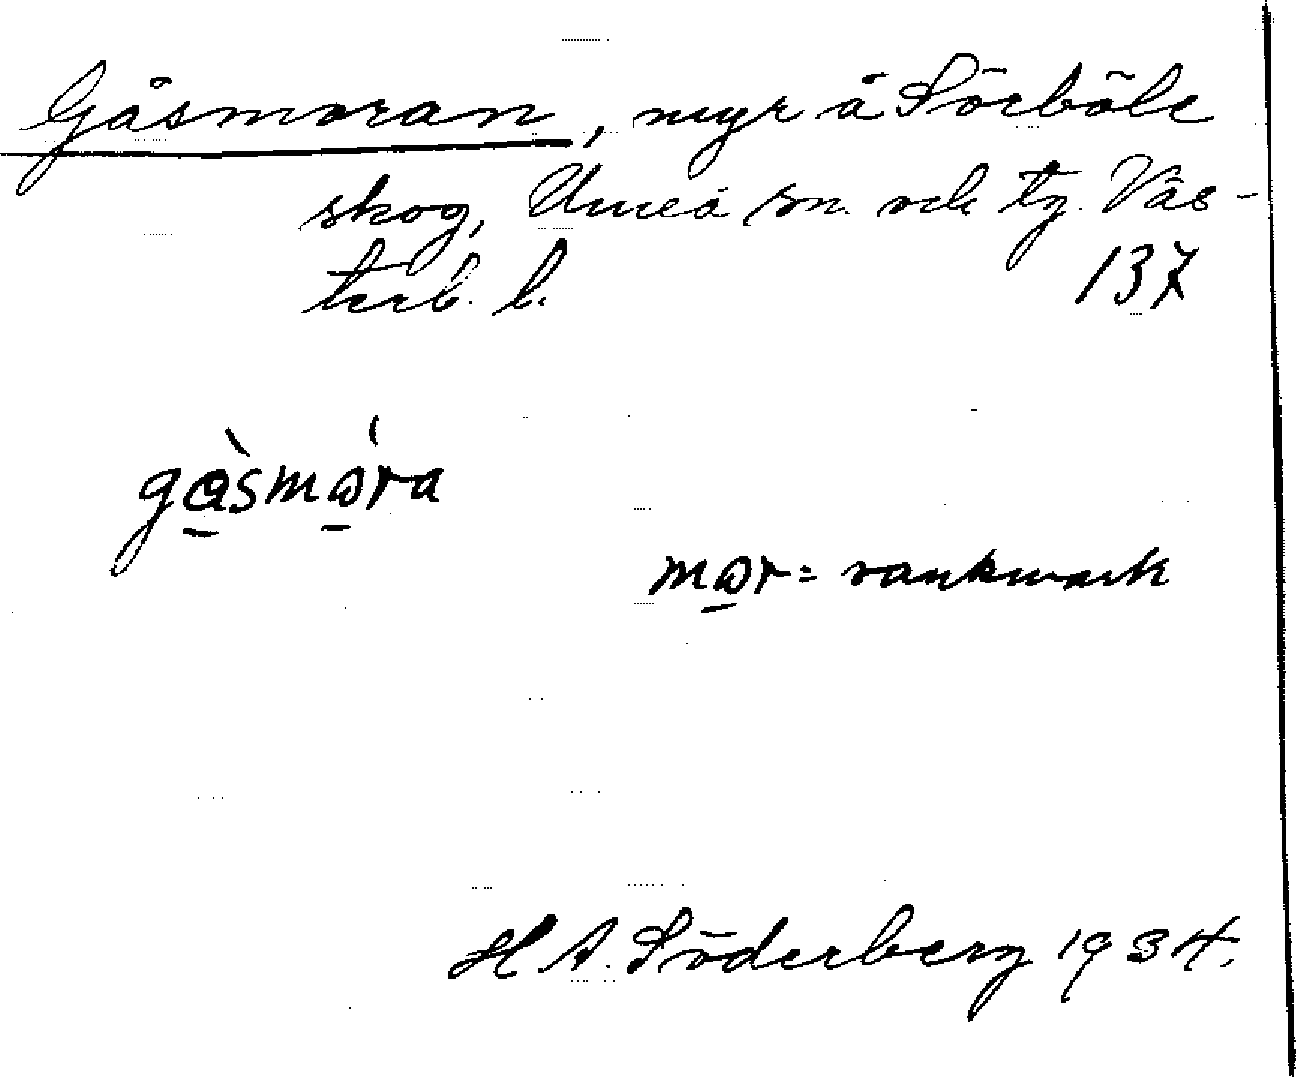 Gåsmoran, myr å Sörböle
skog, Umeå sn. och tg. Väs-
terb. l.
137
gåsmora
mor = vankmark
H A. Söderberg 1934.